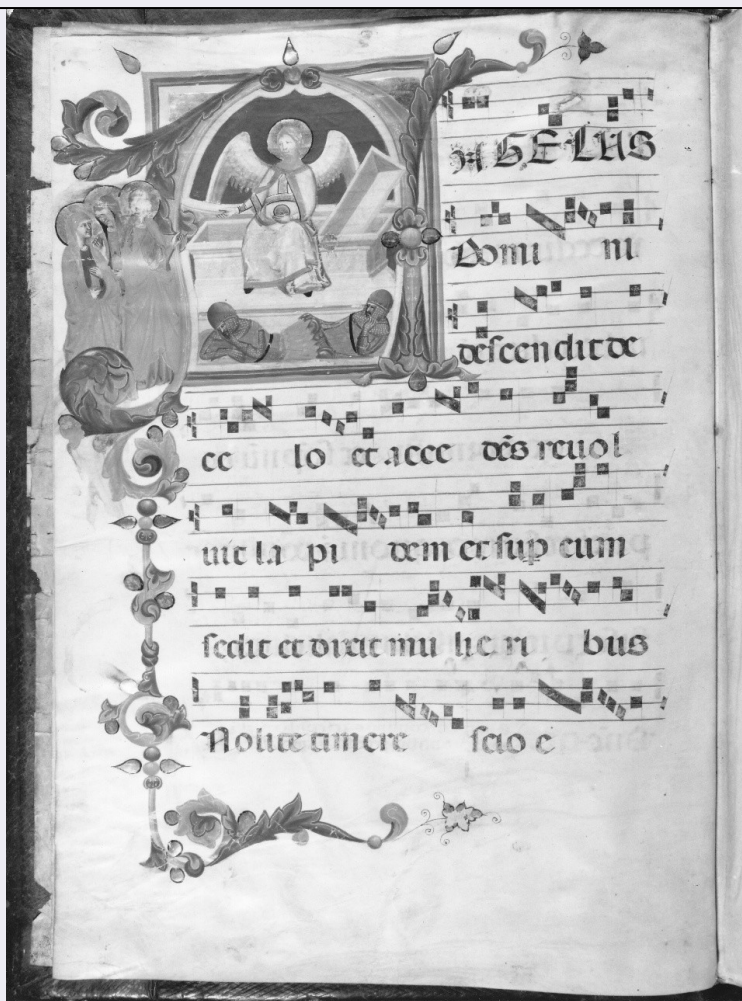 NGELUS
Domi ni
descendit de
ce lo et acce dēs reuol
uit la pi dem et sup eum
sedit et dixit mu lie ri bus
Nolite timere scio e